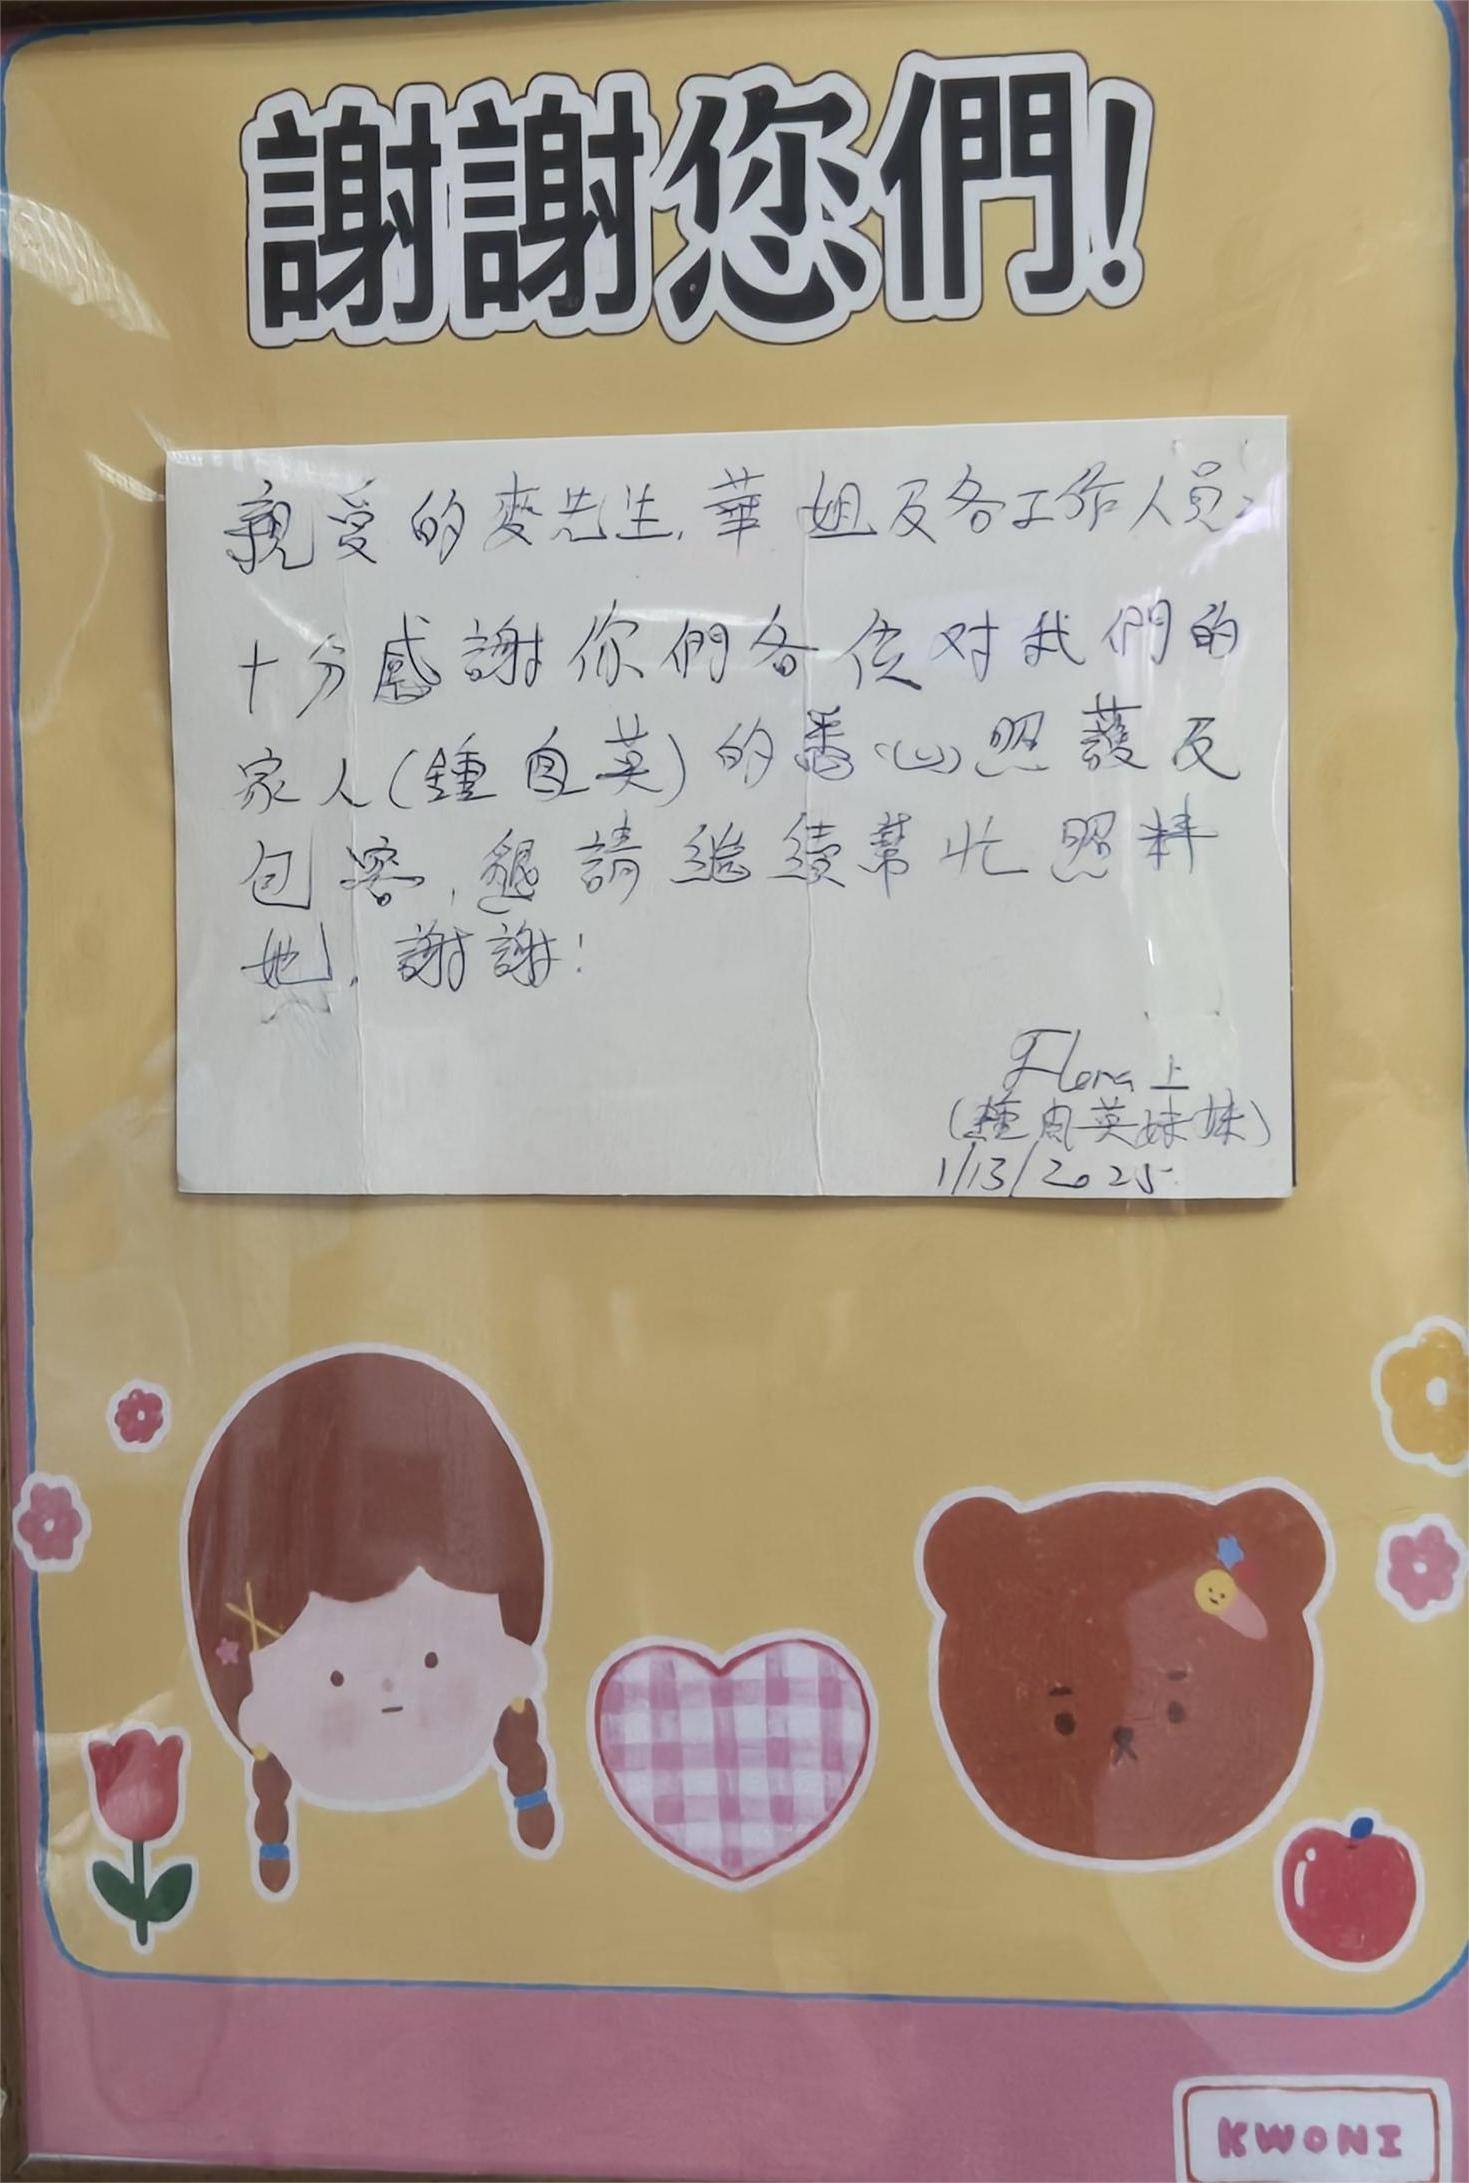 謝謝您們!
親愛的麥先生,華姐及各工作人員:
十分感謝你們各位对我們的
家人(鍾自英)的悉心照護及
包容,懇請繼續幫忙照料
她,謝謝!
Flora上
(鍾自英妹妹)
1/13/2025
KWONI